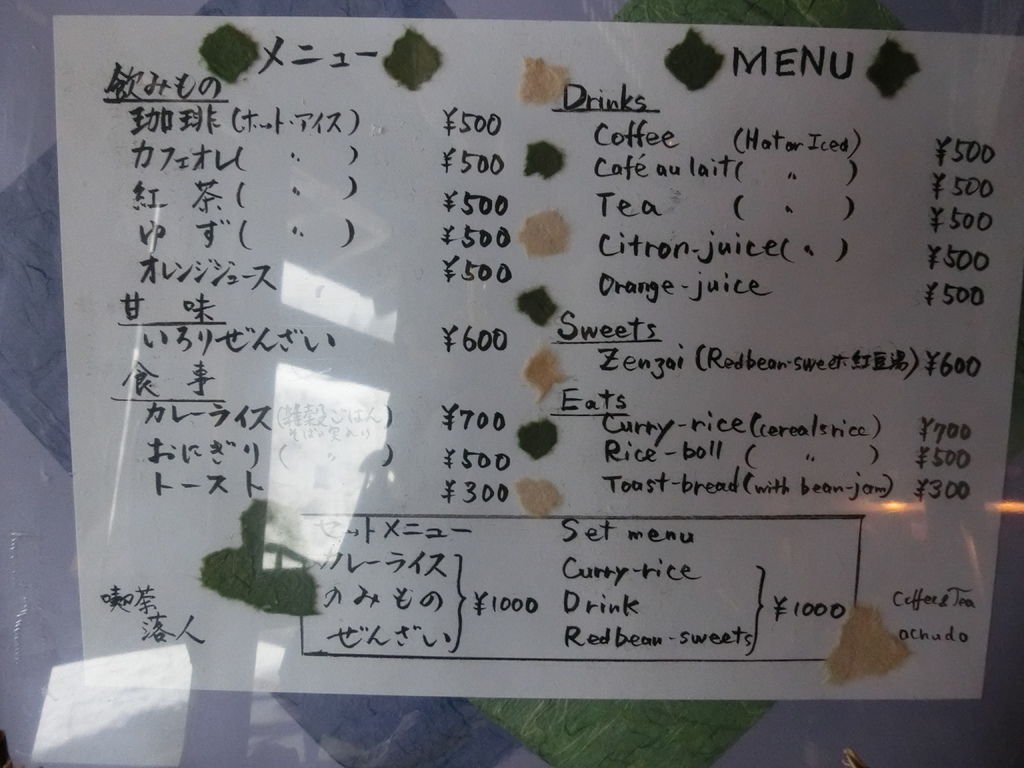 メニュー
飲みもの
珈琲(ホット・アイス) ¥500
カフェオレ( 〃 ) ¥500
紅 茶( 〃 ) ¥500
ゆ ず( 〃 ) ¥500
オレンジジュース ¥500
甘 味
いろりぜんざい ¥600
食 事
カレーライス(雑穀ごはん そばの実入り) ¥700
おにぎり( 〃 ) ¥500
トースト ¥300
MENU
Drinks
Coffee (Hot or Iced) ¥500
Café au lait( 〃 ) ¥500
Tea ( 〃 ) ¥500
Citron-juice( 〃 ) ¥500
Orange-juice ¥500
Sweets
Zenzai (Redbean-sweet・紅豆湯) ¥600
Eats
Curry-rice(cerealsrice) ¥700
Rice-boll ( 〃 ) ¥500
Toast-bread(with bean-jam) ¥300
セットメニュー
カレーライス
のみもの ¥1000
ぜんざい
Set menu
Curry-rice
Drink ¥1000
Redbean-sweets
喫茶
落人
Coffee&Tea
ochudo